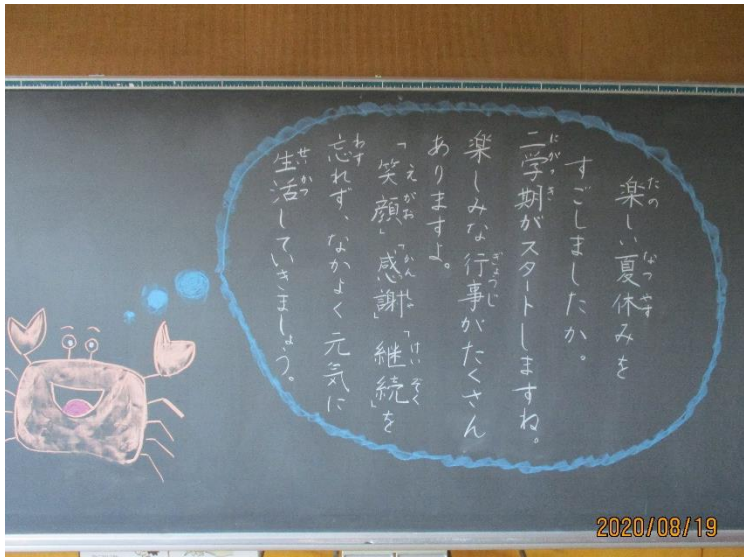 楽しい夏休みを
すごしましたか。
二学期がスタートしますね。
楽しみな行事がたくさん
ありますよ。
「笑顔」「感謝」「継続」を
忘れず、なかよく元気に
生活していきましょう。
2020/08/19